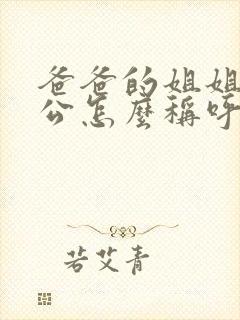 爸爸的姐姐
公怎麼稱呼
若艾青